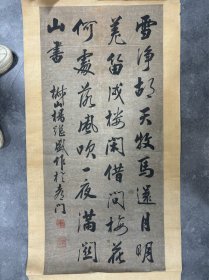 雪净胡天牧马還月明
羌笛戍楼間借問梅花
何處落風吹一夜滿關
山書
樹山楊继盛作於都门